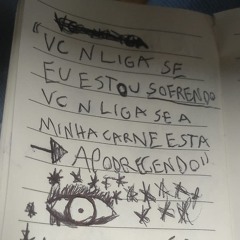 "VC N LIGA SE
EU ESTOU SOFRENDO
VC N LIGA SE A
MINHA CARNE ESTA
APODRECENDO"